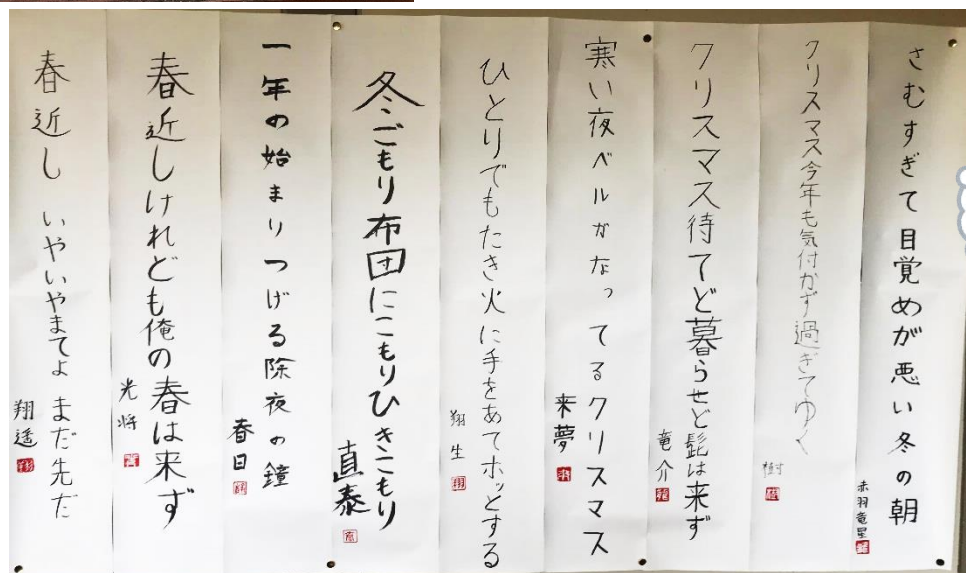 さむすぎて目覚めが悪い冬の朝
赤羽竜星
クリスマス今年も気付かず過ぎてゆく
樹
クリスマス待てど暮らせど髭は来ず
竜介
寒い夜ベルがなってるクリスマス
来夢
ひとりでもたき火に手をあてホッとする
翔生
冬ごもり布団にこもりひきこもり
直泰
一年の始まりつげる除夜の鐘
春日
春近しけれども俺の春は来ず
光将
春近し いやいやまてよ まだ先だ
翔遥